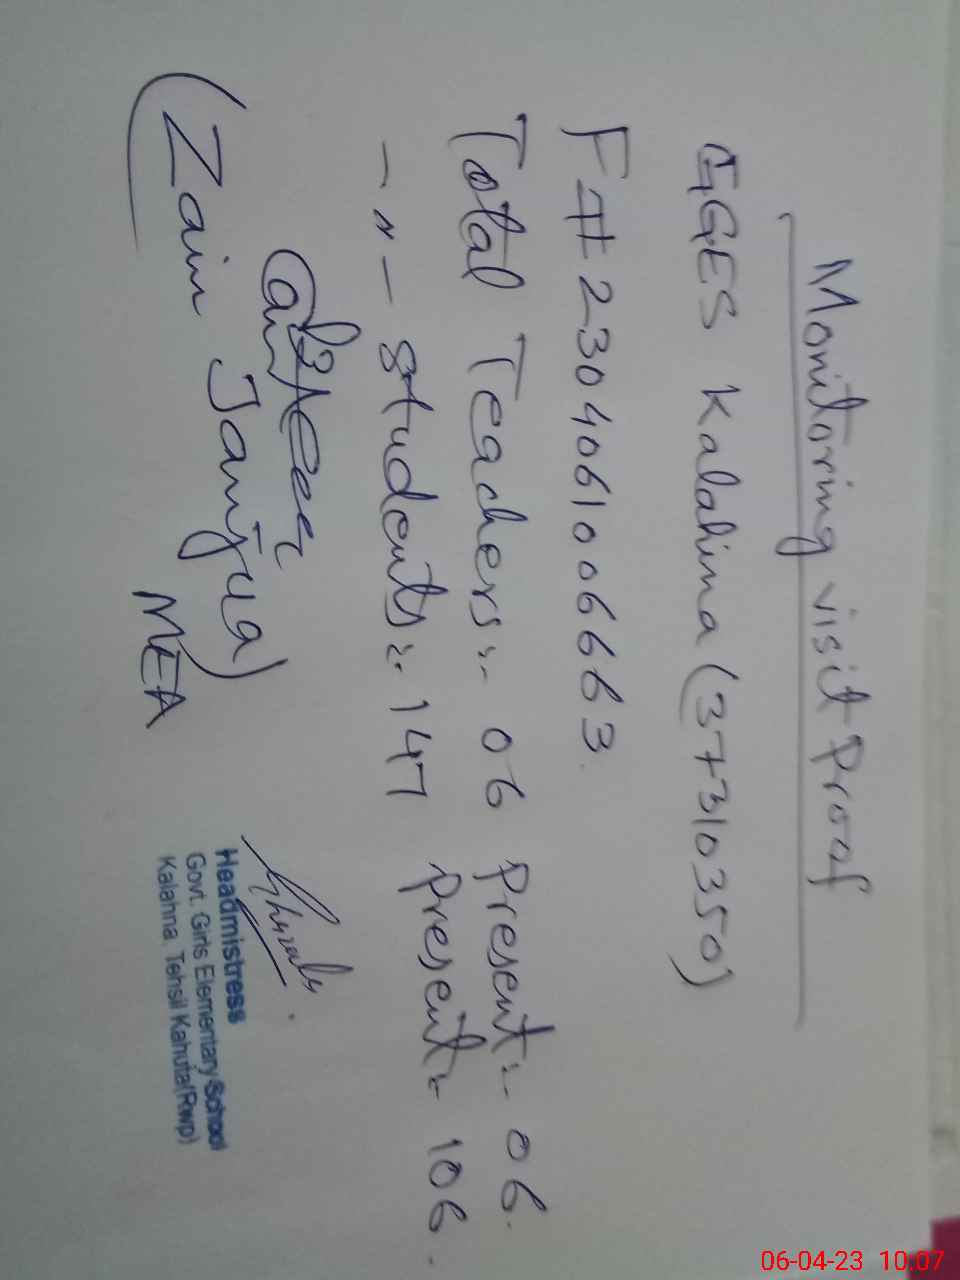 Monitoring visit Proof
GGES Kalahna (37310350)
F# 2304061006663.
Total Teachers:- 06 Present:- 06.
-〃- Students:- 147 Present:- 106.
(Zain Janjua)
MEA
Headmistress
Govt. Girls Elementary School
Kalahna. Tehsil Kahuta(Rwp)
06-04-23 10:07